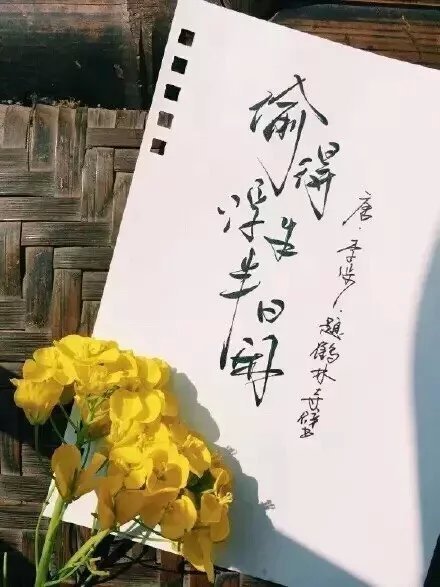 偷得
浮生
半日闲
唐·李涉·題鹤林寺壁